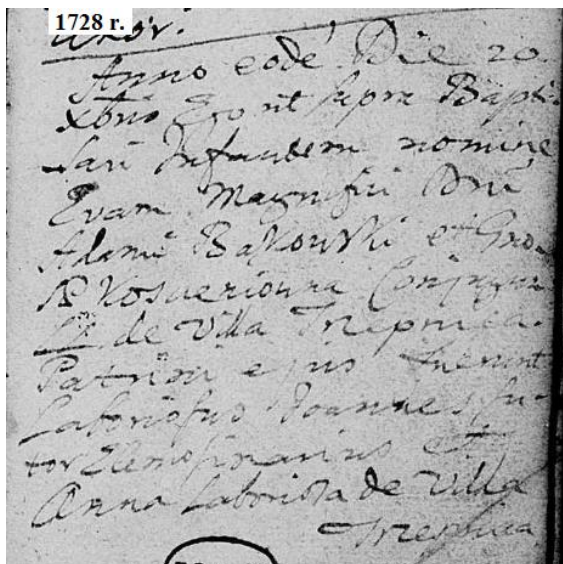 1728 r.
uxor.
Anno eodē Die 20.
Xbris Ego ut supra Bapti-
savi Infantem nomine
Evam Magnifici Dnī
Adami Bąkowski et
Conjugum
de Villa Trzepnica.
Patrini ejus fuerunt
Laboriosus Joannes su-
tor Elemosinarius et
Anna Laboriosa de Villa
Trzepnica